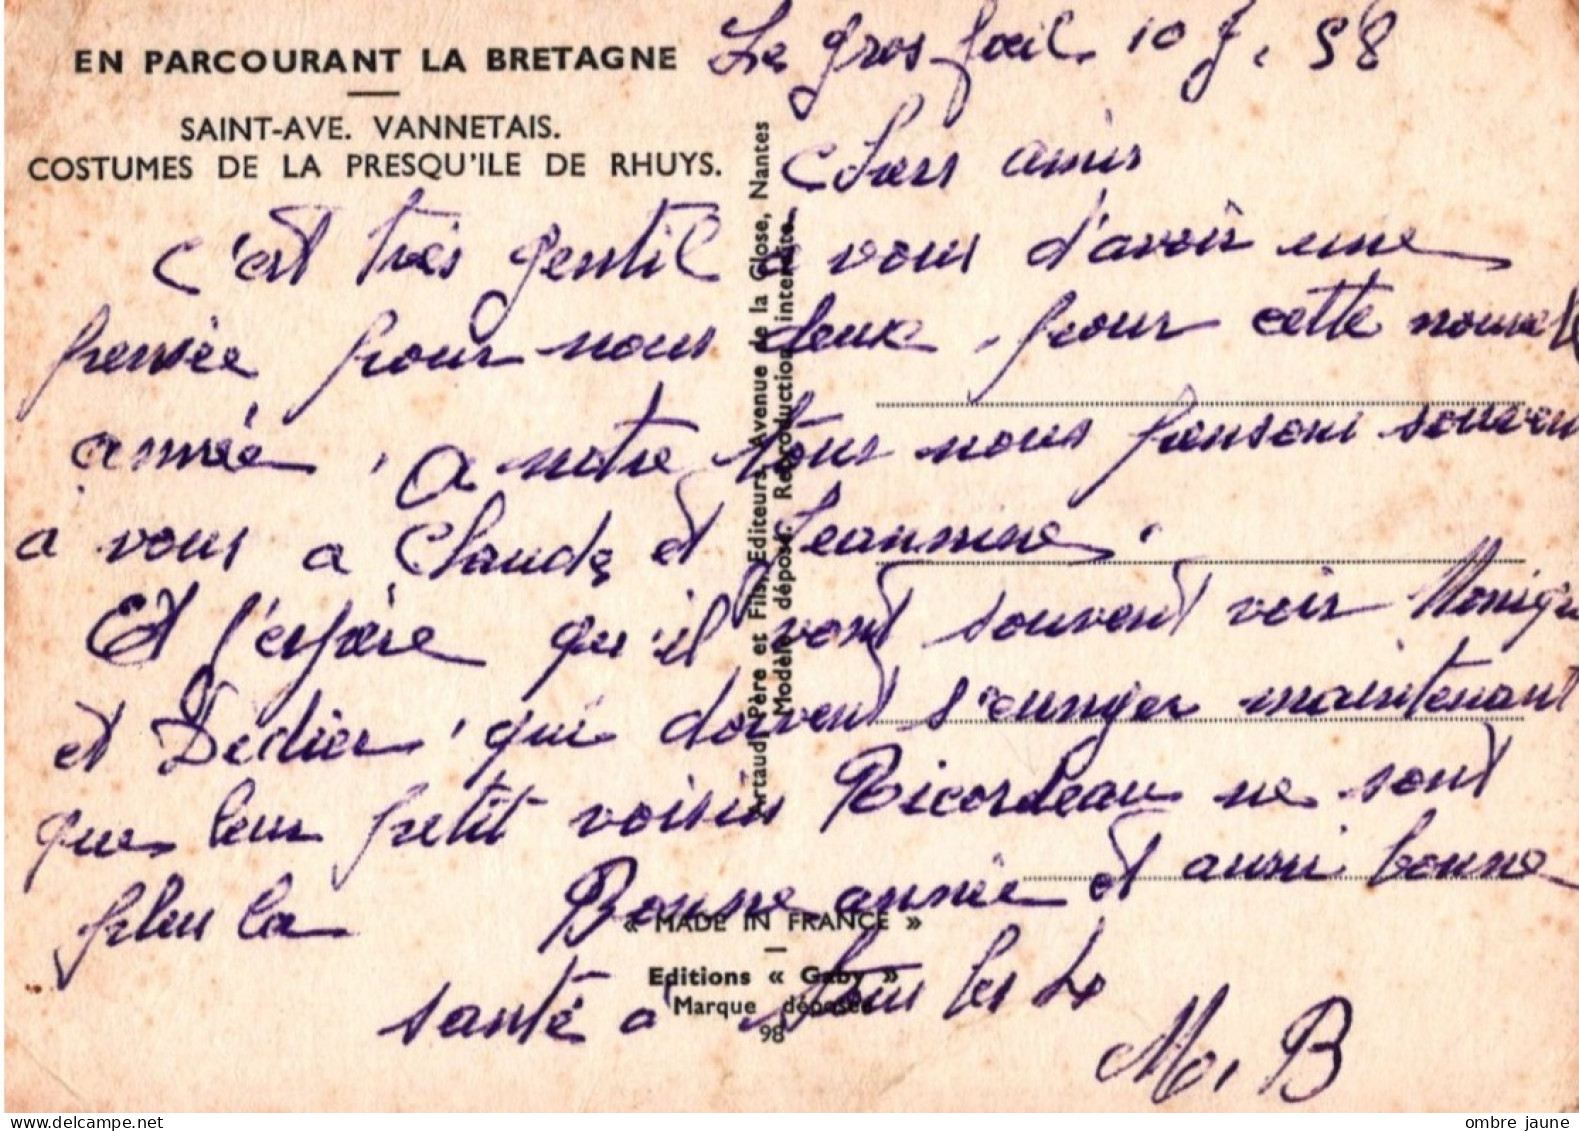 EN PARCOURANT LA BRETAGNE
SAINT-AVE. VANNETAIS.
COSTUMES DE LA PRESQU'ILE DE RHUYS.
Le gros 10 J. 58
Chers amis
C'est très gentil a vous d'avoir une
pensée pour nous deux, pour cette nouvelle
année, A notre tour nous pensons souven
a vous a Claude et Jeannine.
Et j'espère qu'il vont souvent voir Moniqu
et Dedier, qui doivent s'ennuyer maintenant
que leur petit voisins Ricordeau ne sont
plus la Bonne année et aussi bonne
santé a tous les 4
M. B
Artaud Père et Fils, Editeurs, Avenue de la Close, Nantes
Modèle déposé. Reproduction interdite
« MADE IN FRANCE »
Editions « Gaby »
Marque déposée
98
ombre jaune